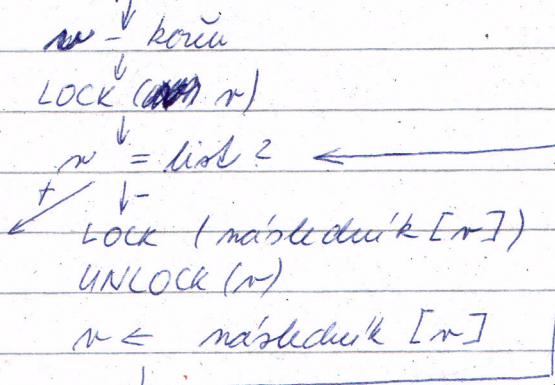 v - kořen
LOCK (v)
v = list?
+ -
LOCK (následník [v])
UNLOCK (v)
v ← následník [v]